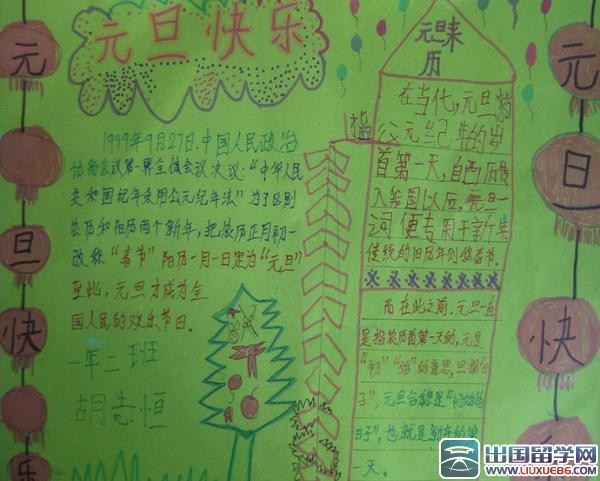 元旦快乐
元
旦
快
乐
1949年9月27日.中国人民政治
协商会议第一界全体会议决议:“中华人民
共和国纪年采用公元纪年法”为了区别
农历和阳历两个新年,把农历正月初一
改称“春节”阳历一月一日定为“元旦”
至此,元旦才成为全
国人民的欢乐节日。
一年二班
胡志恒
元旦来
历
在当代,元旦指
公元纪年的岁
首第一天,自西历传
入我国以历.元旦一
词便专用于新年
传统的旧历年则做春节.
而在此之前,元旦一直
是指农历首第一天的,元是
“初”“始”的意思,旦指“日
子”,元旦合称是“初始的
日子”,也就是新年的第
一天.
元
旦
快
乐
出国留学网
www.liuxue86.com